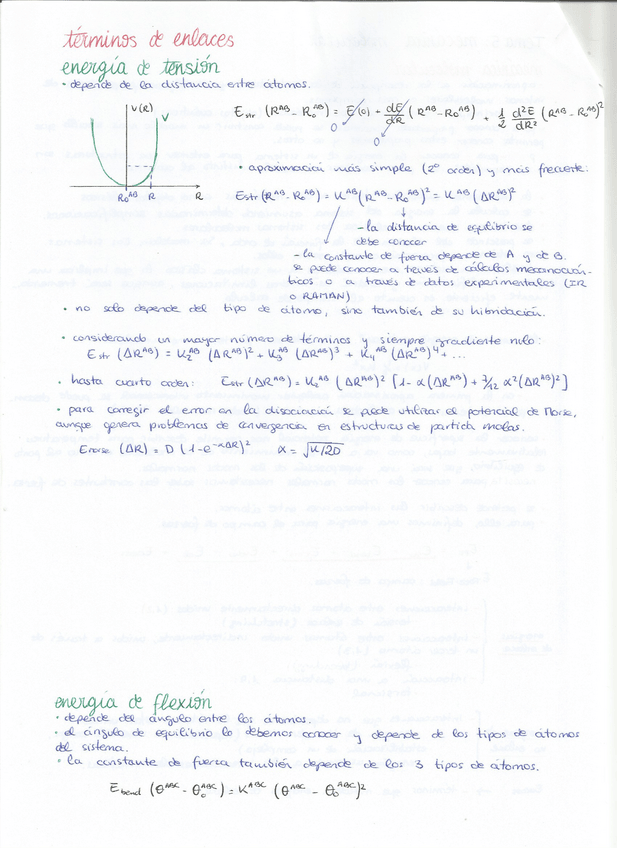 términos de enlaces
energía de tensión
• depende de la distancia entre átomos.
V(R)
V
R₀ᴬᴮ R R
E str (Rᴬᴮ - R₀ᴬᴮ) = E(0) + dE/dR (Rᴬᴮ - R₀ᴬᴮ) + 1/2 d²E/dR² (Rᴬᴮ - R₀ᴬᴮ)²
0
0
• aproximación más simple (2º orden) y más frecuente:
Estr (Rᴬᴮ - R₀ᴬᴮ) = Kᴬᴮ (Rᴬᴮ - R₀ᴬᴮ)² = Kᴬᴮ (ΔRᴬᴮ)²
- la distancia de equilibrio se
debe conocer
- la constante de fuerza depende de A y de B.
se puede conocer a través de cálculos mecanocuán-
ticos o a través de datos experimentales (IR
o RAMAN)
• no solo depende del tipo de átomo, sino también de su hibridación.
• considerando un mayor número de términos y siempre gradiente nulo:
Estr (ΔRᴬᴮ) = K₂ᴬᴮ (ΔRᴬᴮ)² + K₃ᴬᴮ (ΔRᴬᴮ)³ + K₄ᴬᴮ (ΔRᴬᴮ)⁴ + ...
• hasta cuarto orden: Estr (ΔRᴬᴮ) = K₂ᴬᴮ (ΔRᴬᴮ)² [1 - α(ΔRᴬᴮ) + 7/12 α² (ΔRᴬᴮ)²]
• para corregir el error en la disociación se puede utilizar el potencial de Morse,
aunque genera problemas de convergencia en estructuras de partida malas.
Emorse (ΔR) = D (1 - e^-αΔR)² α = √K/2D
energía de flexión
• depende del ángulo entre los átomos.
• el ángulo de equilibrio lo debemos conocer y depende de los tipos de átomos
del sistema.
• la constante de fuerza también depende de los 3 tipos de átomos.
E bend (θᴬᴮᶜ - θ₀ᴬᴮᶜ) = Kᴬᴮᶜ (θᴬᴮᶜ - θ₀ᴬᴮᶜ)²